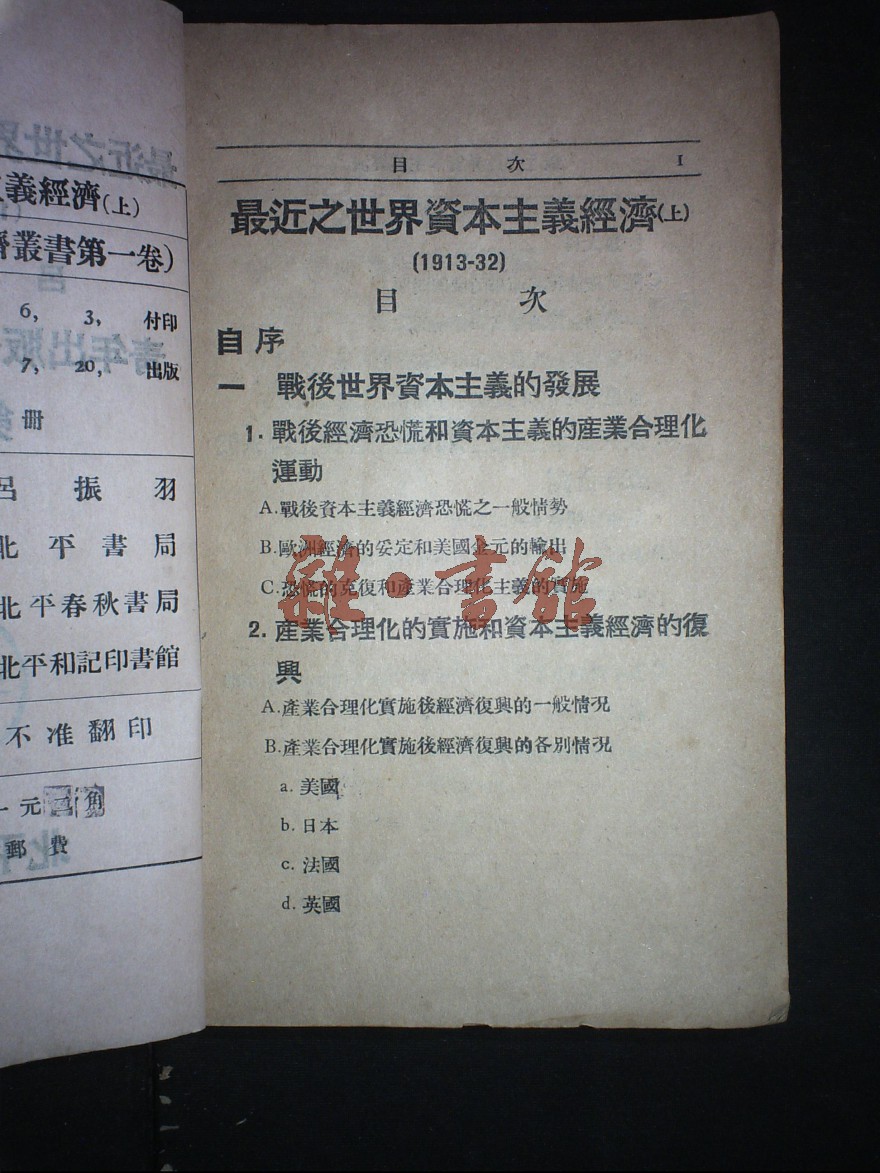 義經濟(上)
叢書第一卷)
6, 3, 付印
7, 20, 出版
冊
呂振羽
北平書局
北平春秋書局
北平和記印書館
不准翻印
元 角
郵費
目次 I
最近之世界資本主義經濟(上)
(1913-32)
目次
自序
一 戰後世界資本主義的發展
1. 戰後經濟恐慌和資本主義的産業合理化
運動
A. 戰後資本主義經濟恐慌之一般情勢
B. 歐洲經濟的妥定和美國金元的輸出
C. 恐慌的克復和產業合理化主義的實施
2. 産業合理化的實施和資本主義經濟的復
興
A. 產業合理化實施後經濟復興的一般情況
B. 產業合理化實施後經濟復興的各別情況
a. 美國
b. 日本
c. 法國
d. 英國
雜·書館